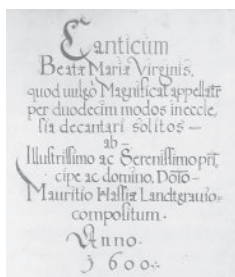 Canticum
Beatæ Mariæ Virginis,
quod uulgò Magnificat appellatr
per duodecim modos in eccle,
sia decantari solitos —
ab —
Illustrissimo ac Serenissimo prī,
cipe ac domino, Dōto
Mauritio Hassiæ Landtgrauio,
compositum.
Anno.
1600.